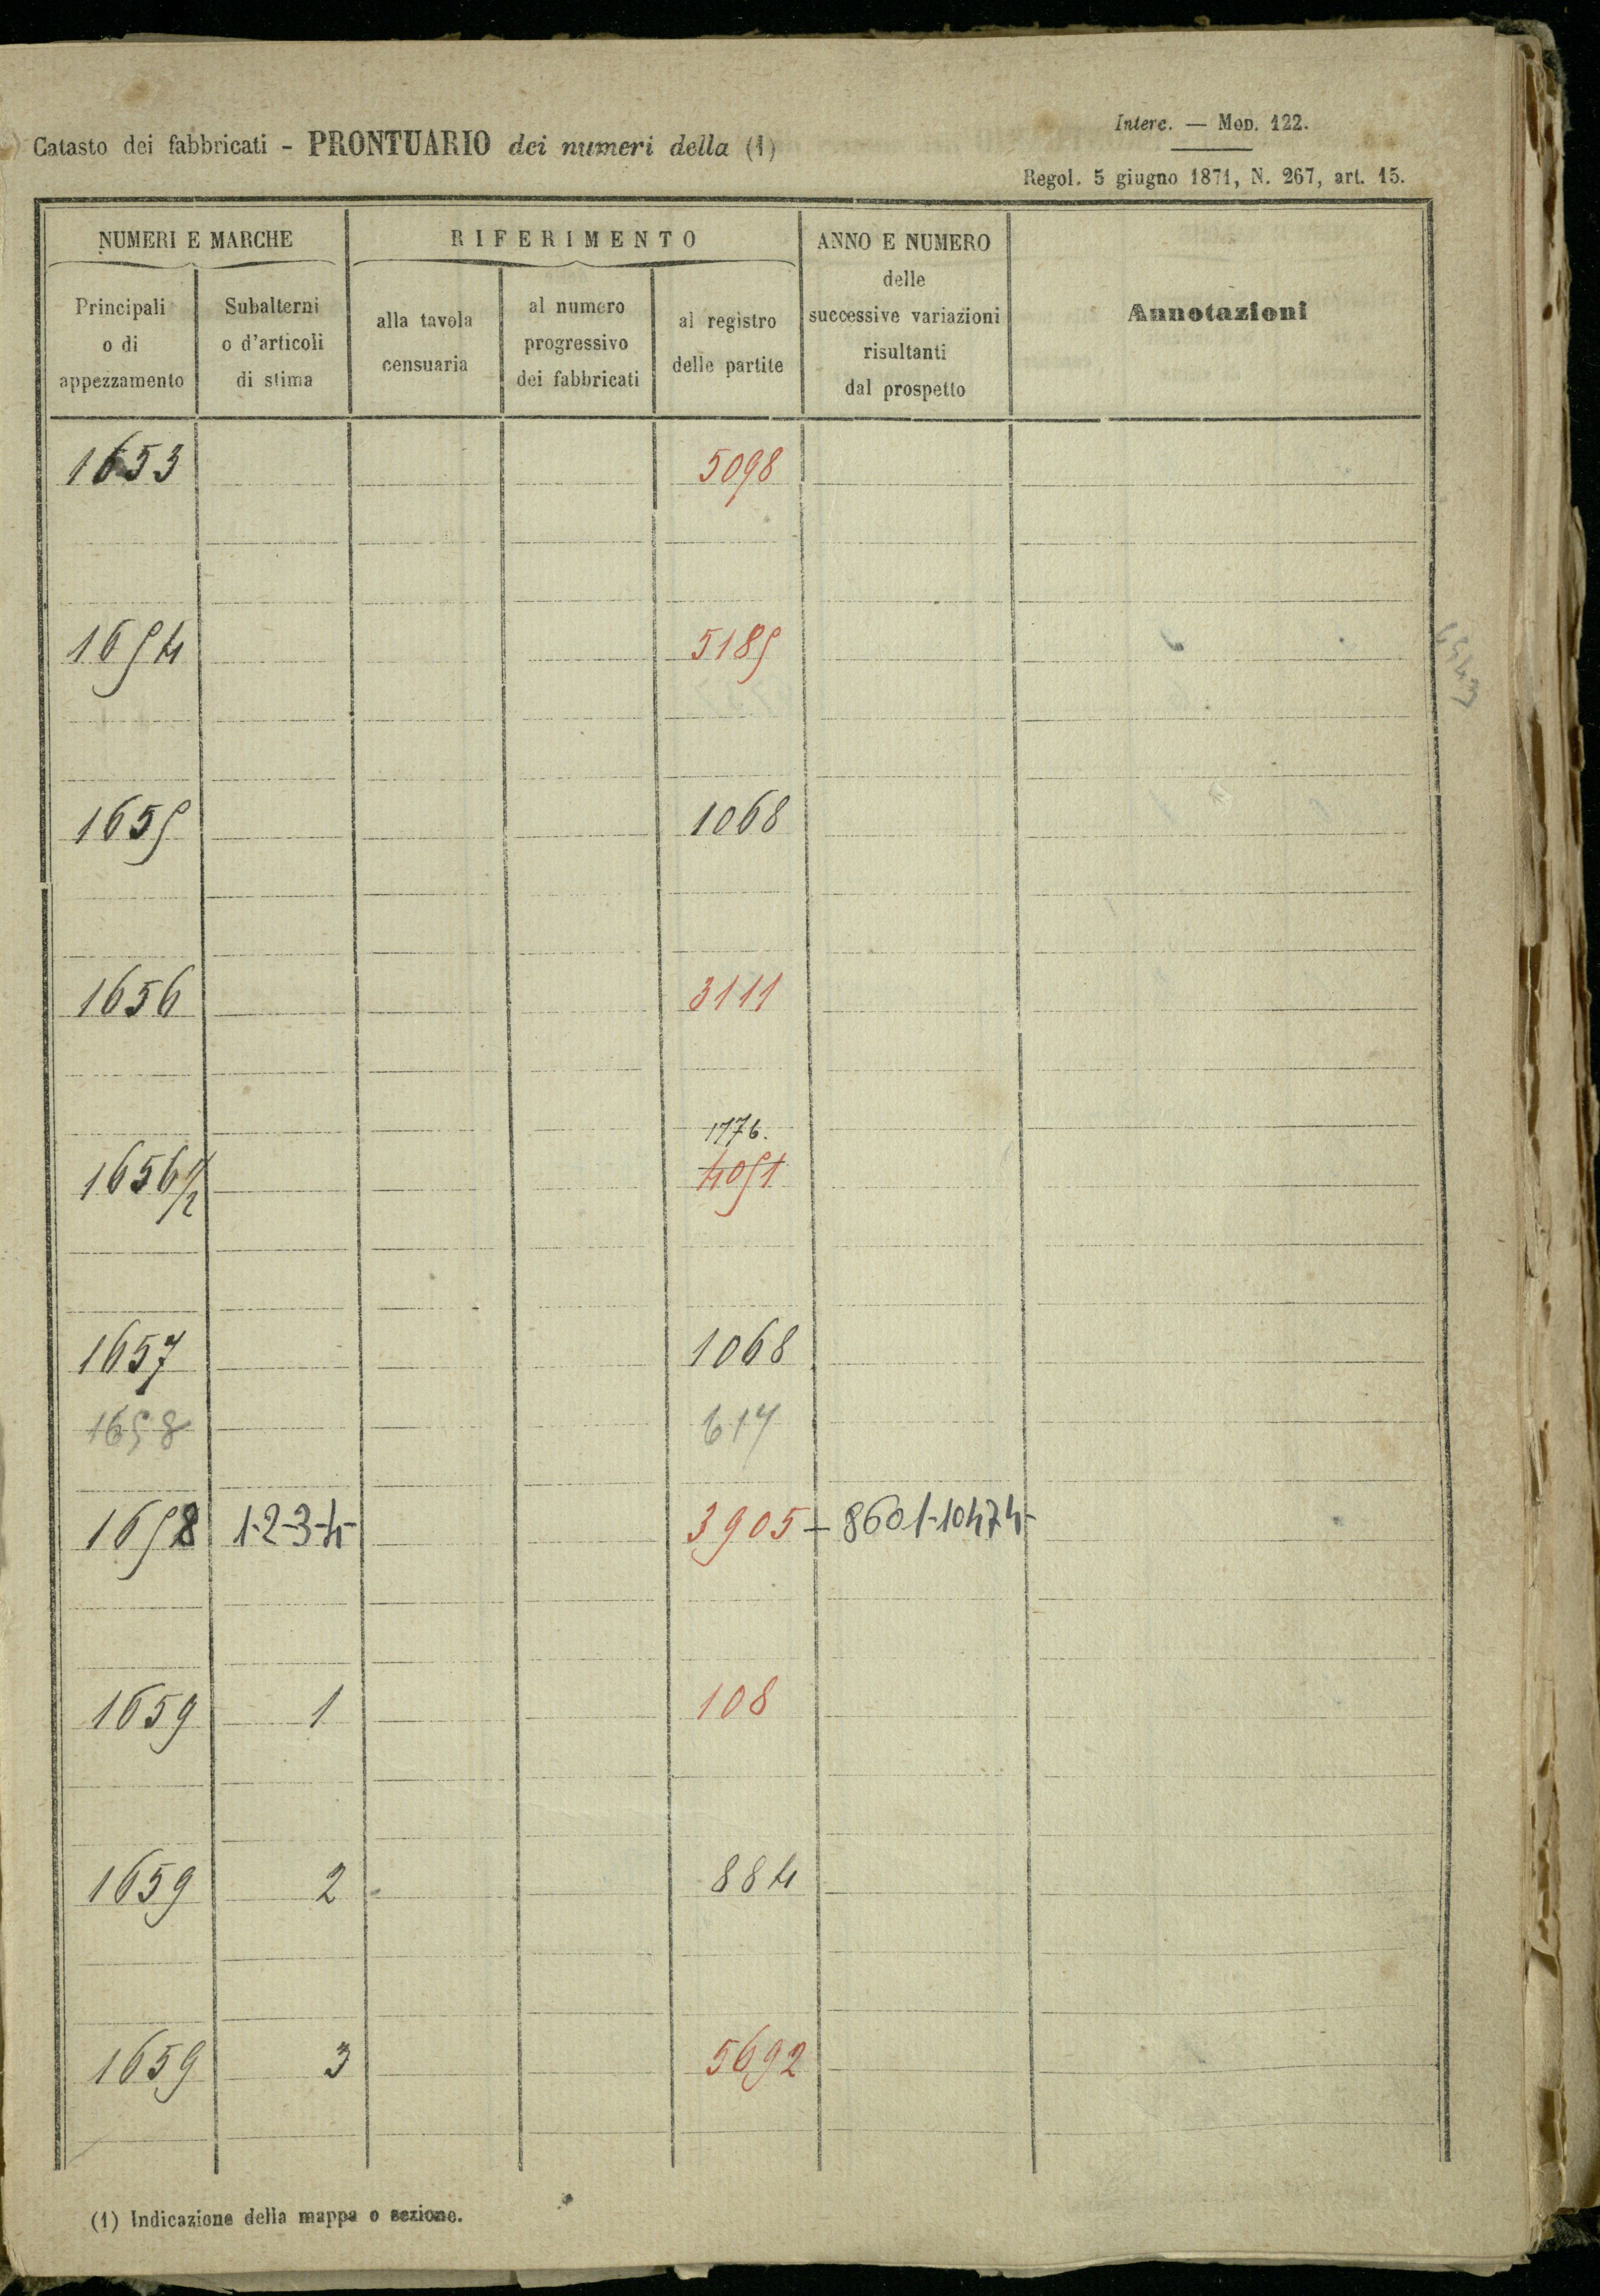 Interc. — Mod. 122.
Catasto dei fabbricati - PRONTUARIO dei numeri della (1)
Regol. 5 giugno 1871, N. 267, art. 15.
NUMERI E MARCHE RIFERIMENTO ANNO E NUMERO delle successive variazioni risultanti dal prospetto Annotazioni
Principali o di appezzamento Subalterni o d'articoli di stima alla tavola censuaria al numero progressivo dei fabbricati al registro delle partite
1653 5098
1654 5185
1655 1068
1656 3111
1776.
1656 1/2 4051
1657 1068
1658 617
1658 1-2-3-4- 3905 - 8601-10474-
1659 1 108
1659 2 884
1659 3 5692
(1) Indicazione della mappa o sezione.